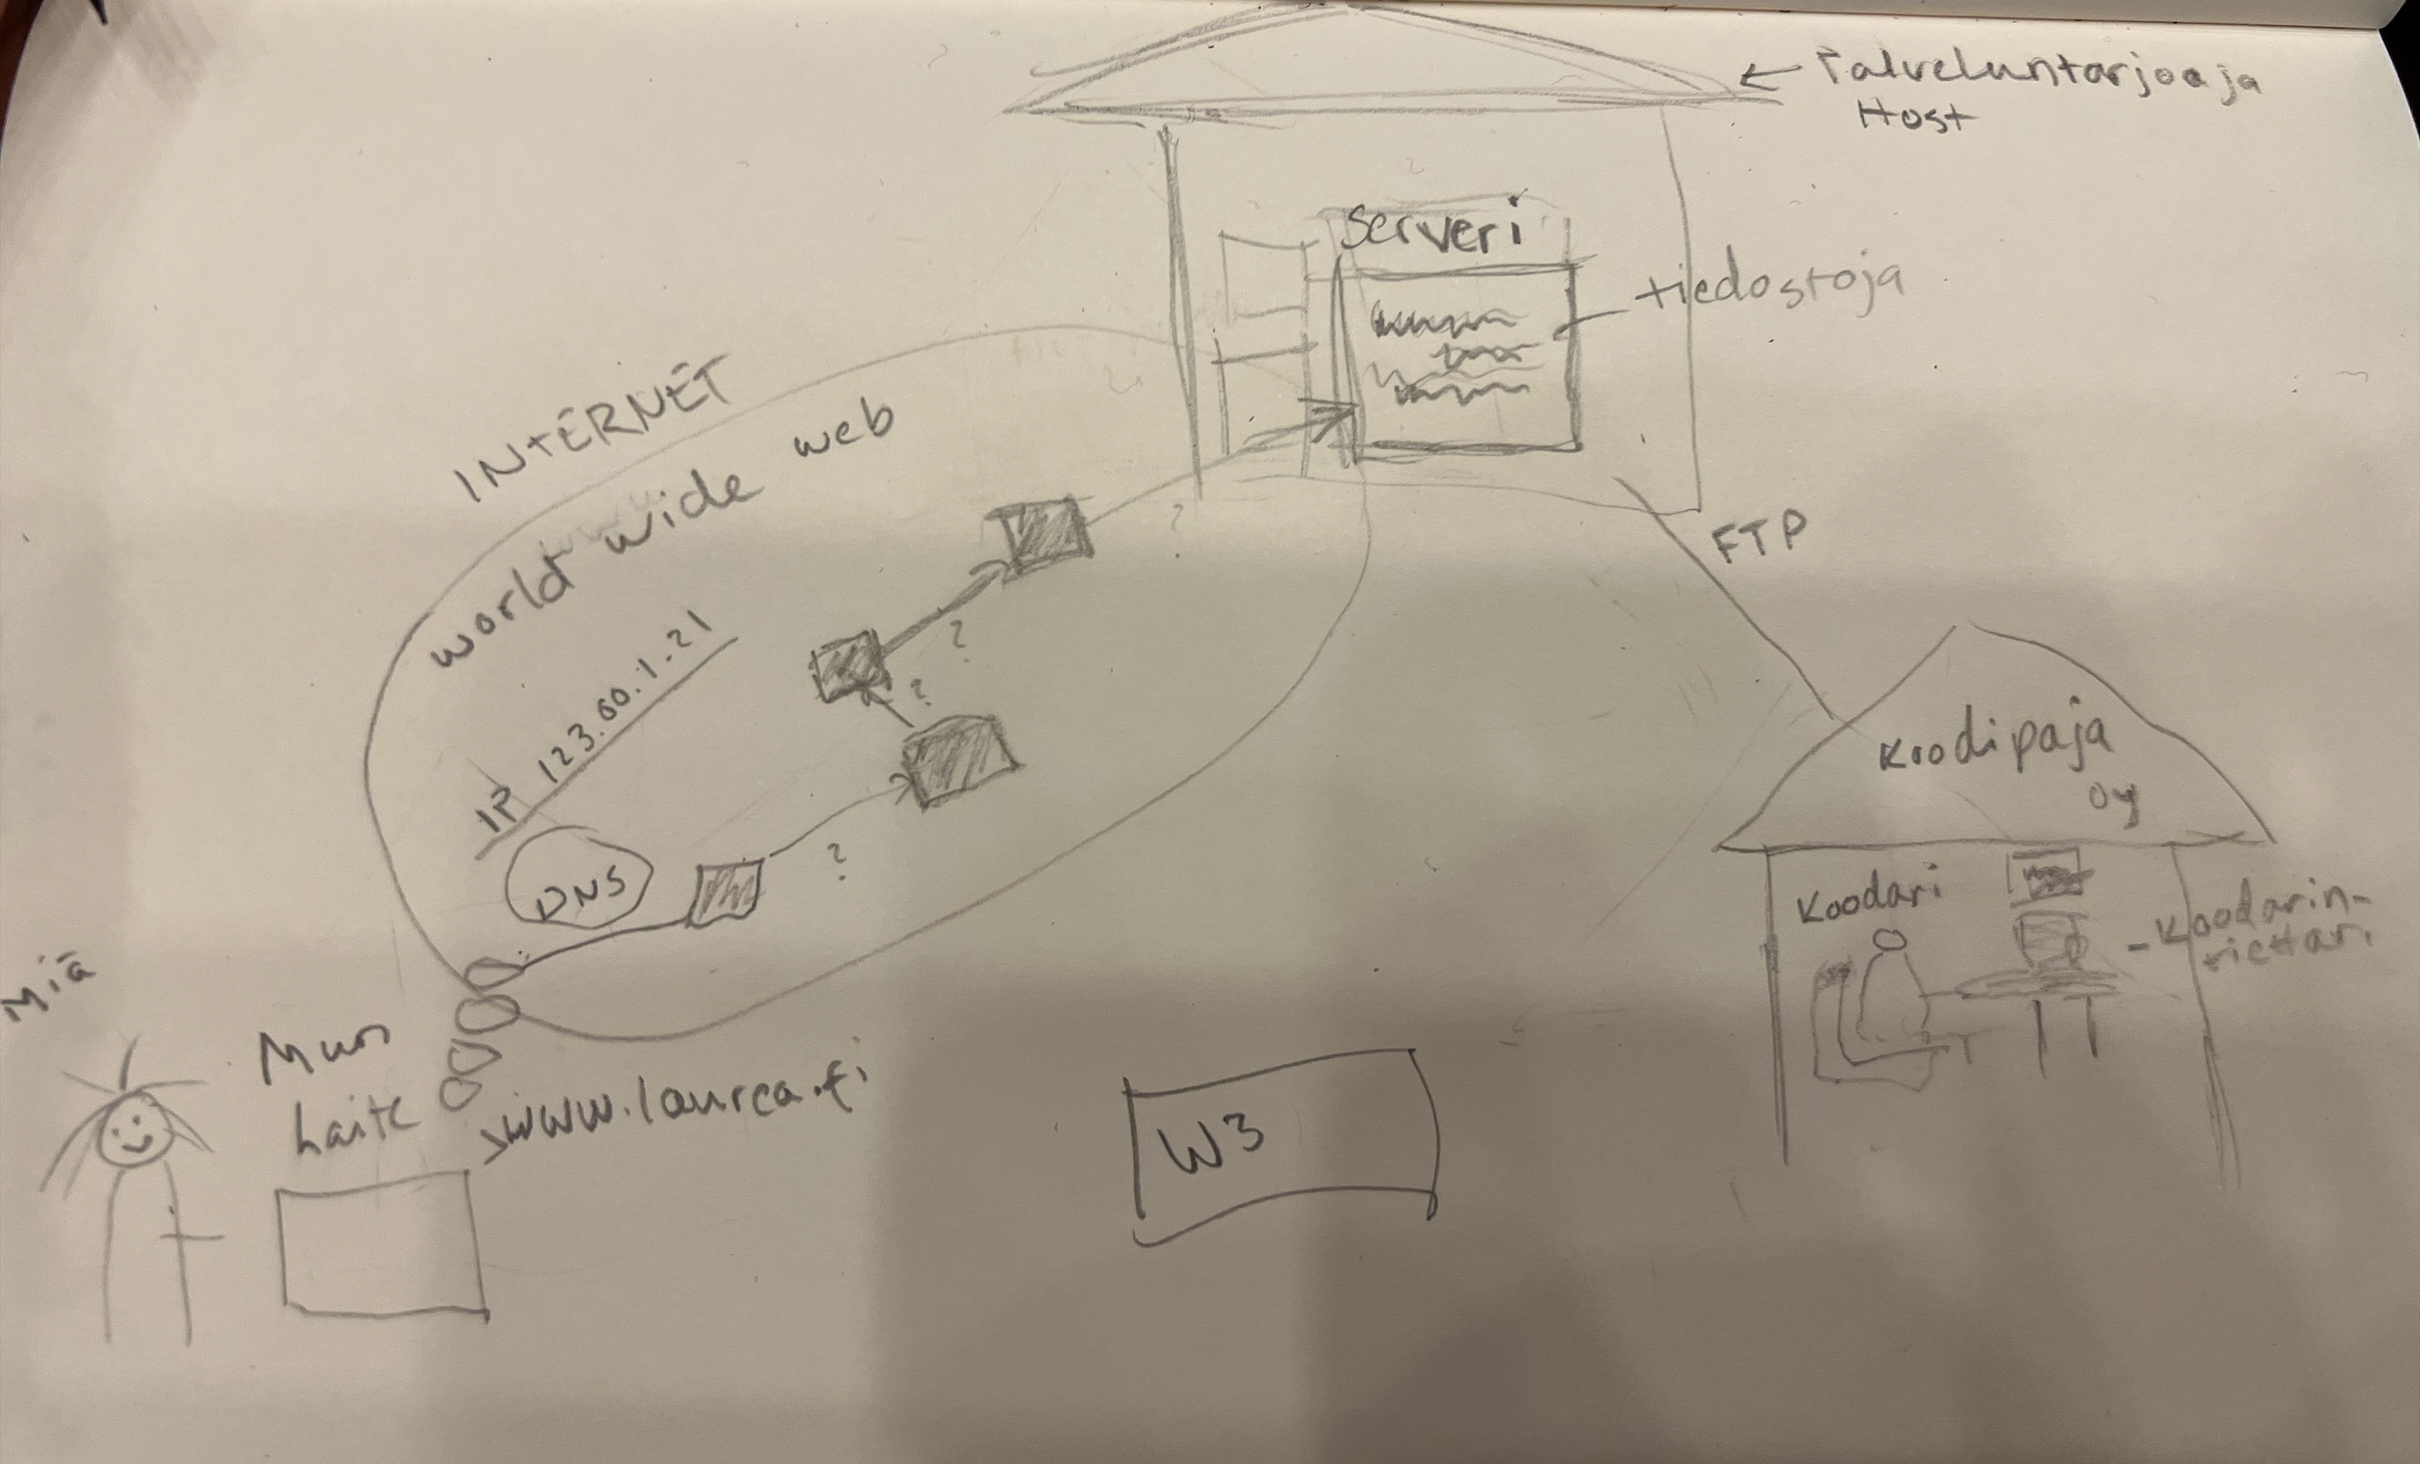 ← Palveluntarjoaja
Host
Serveri
tiedostoja
INTERNET
world wide web
IP 123.60.1.21
DNS
?
?
?
?
FTP
Koodipaja
Oy
Koodari
- Koodarin-
Miä
Mun
Laite
www.laurea.fi
W3